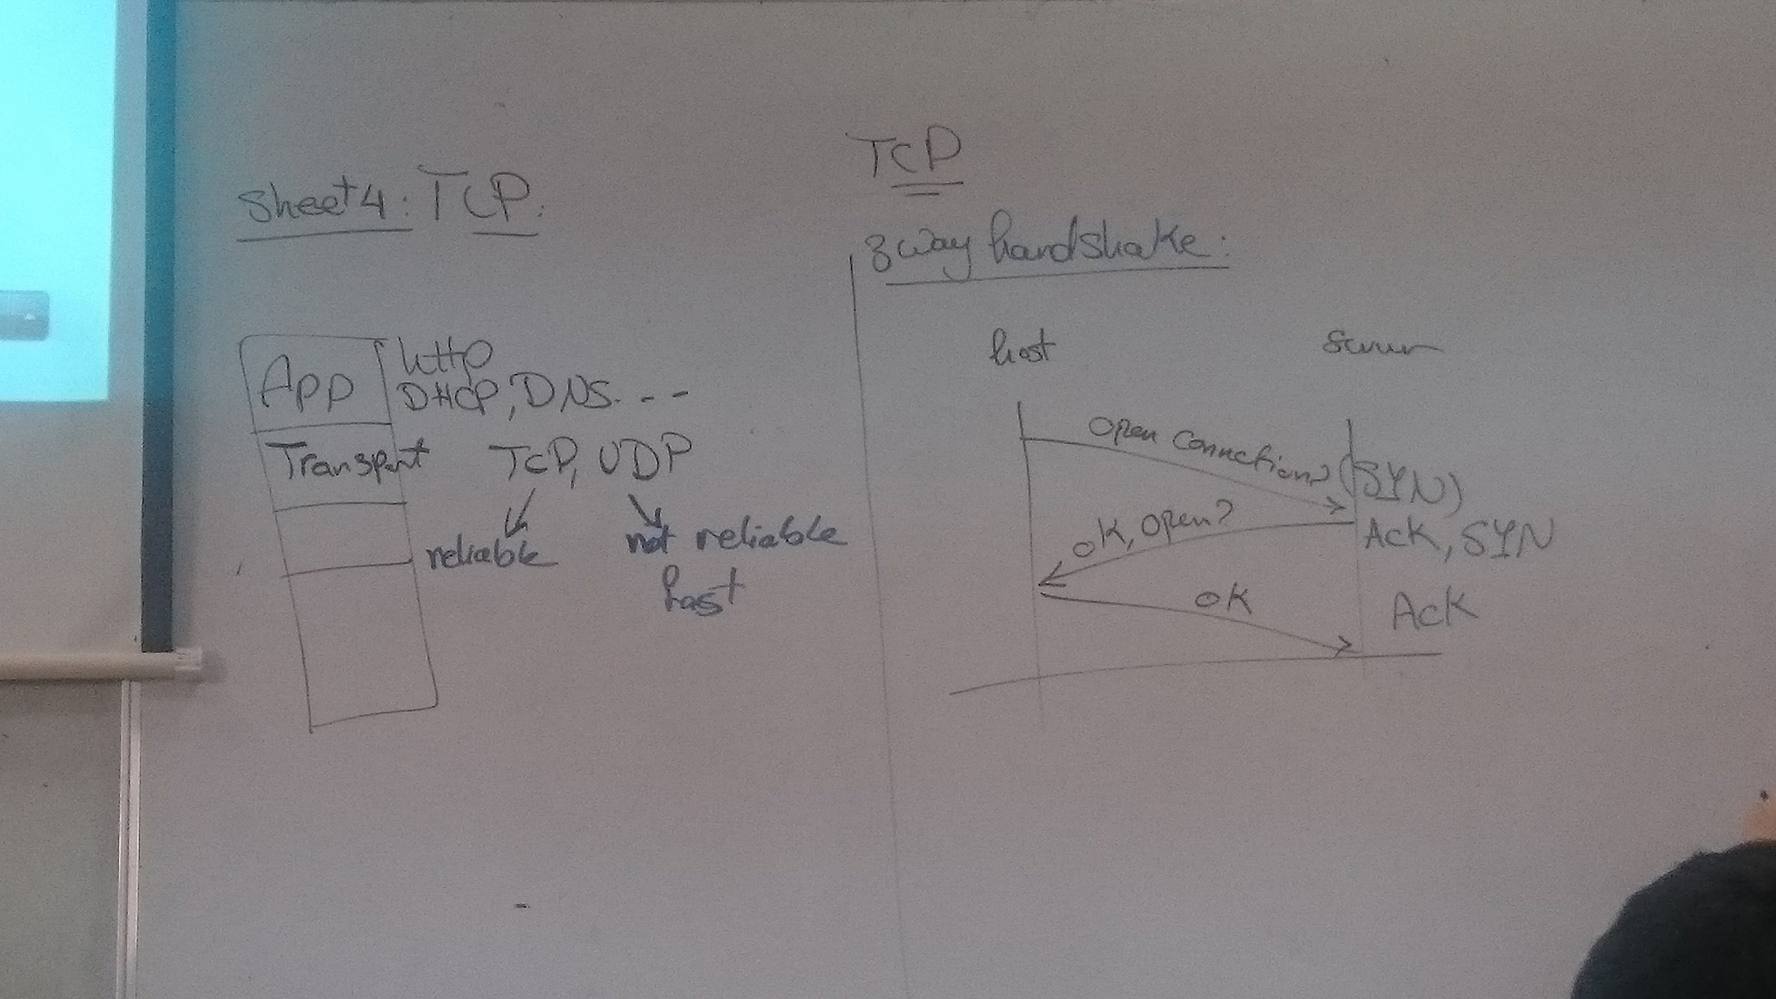 Sheet 4: TCP:
App
http
DHCP, DNS. - -
Transport TCP, UDP
reliable
not reliable
fast
TCP
3 way handshake:
host
Server
Open Connection? (SYN)
OK, Open?
Ack, SYN
OK
Ack